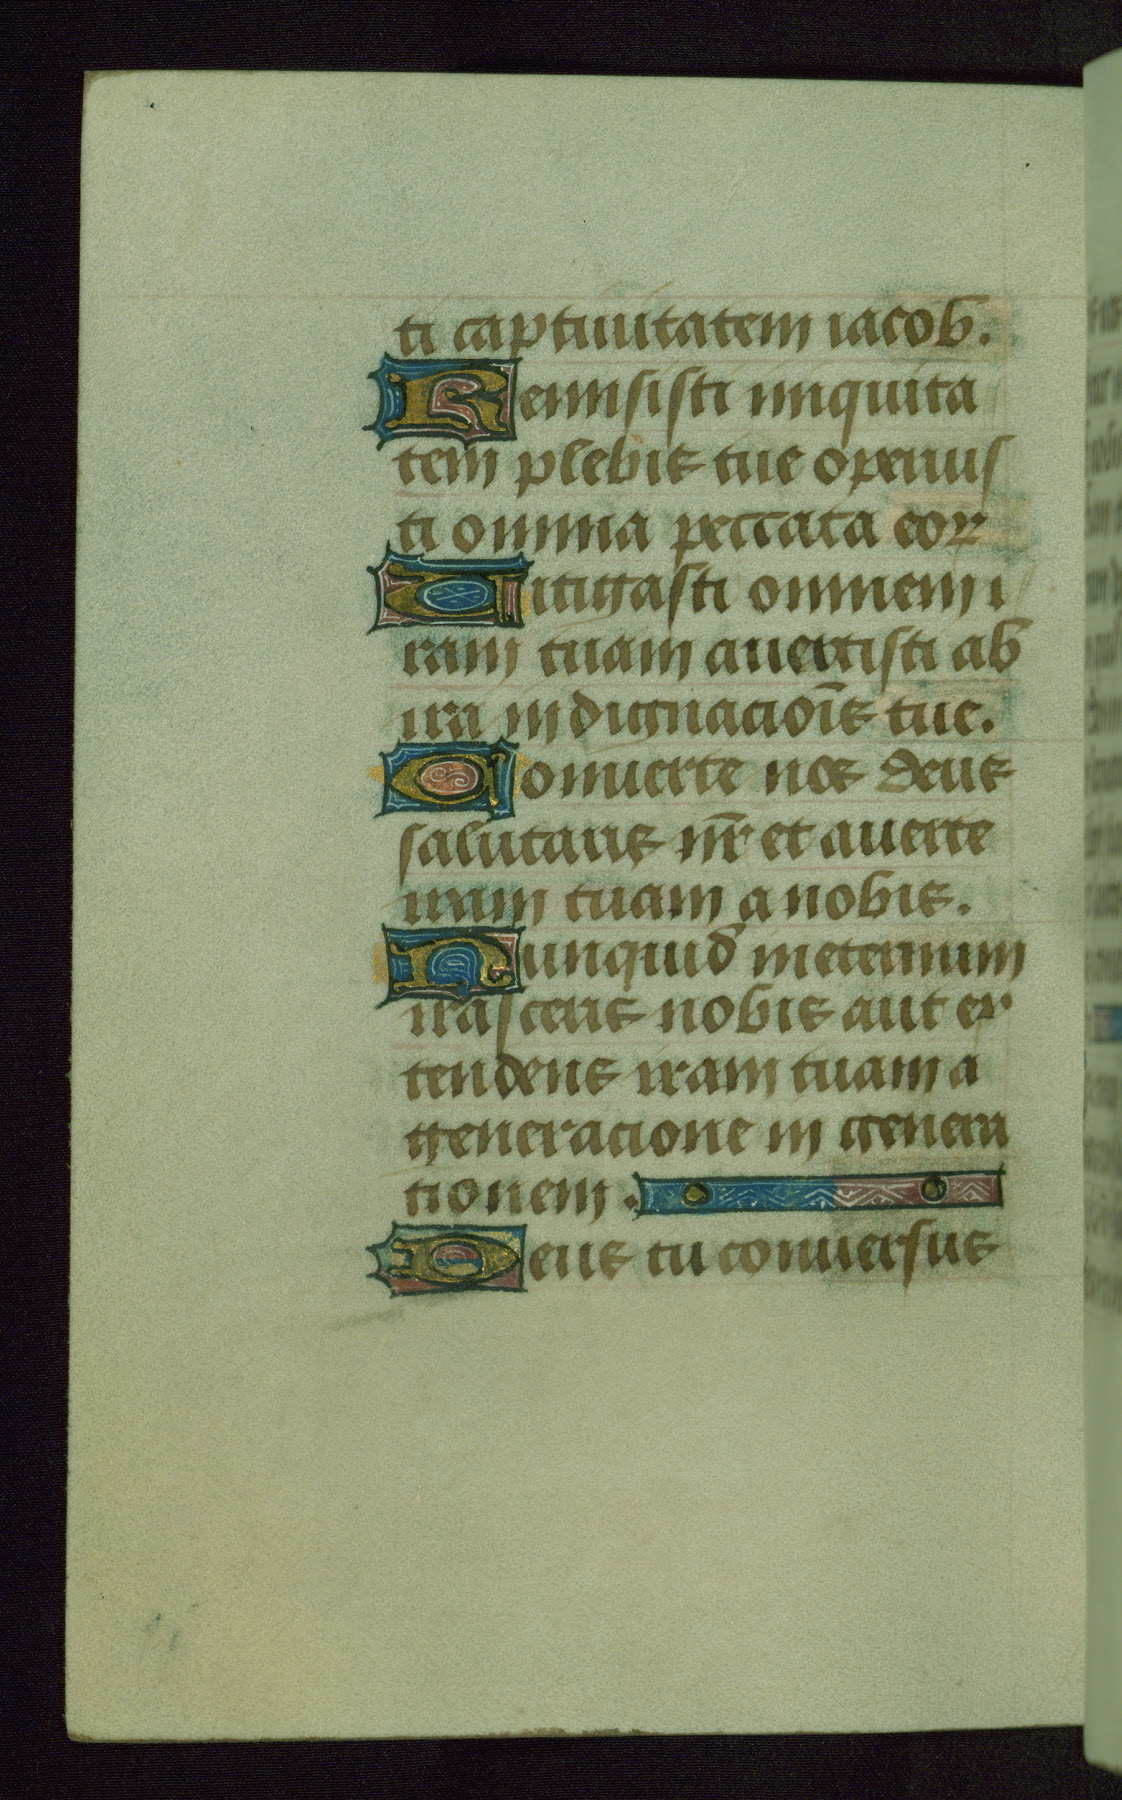 ti captiuitatem iacob.
Remisisti iniquita
tem plebis tue operuis
ti omnia peccata eor
Mitigasti omnem i
ram tuam auertisti ab
ira indignacioīs tue.
Conuerte nos deus
salutaris nr̄ et auerte
iram tuam a nobis.
Nunquid in eternum
irasceris nobis aut ex
tendens iram tuam a
generacione in genera
tionem.
Deus tu conuersus